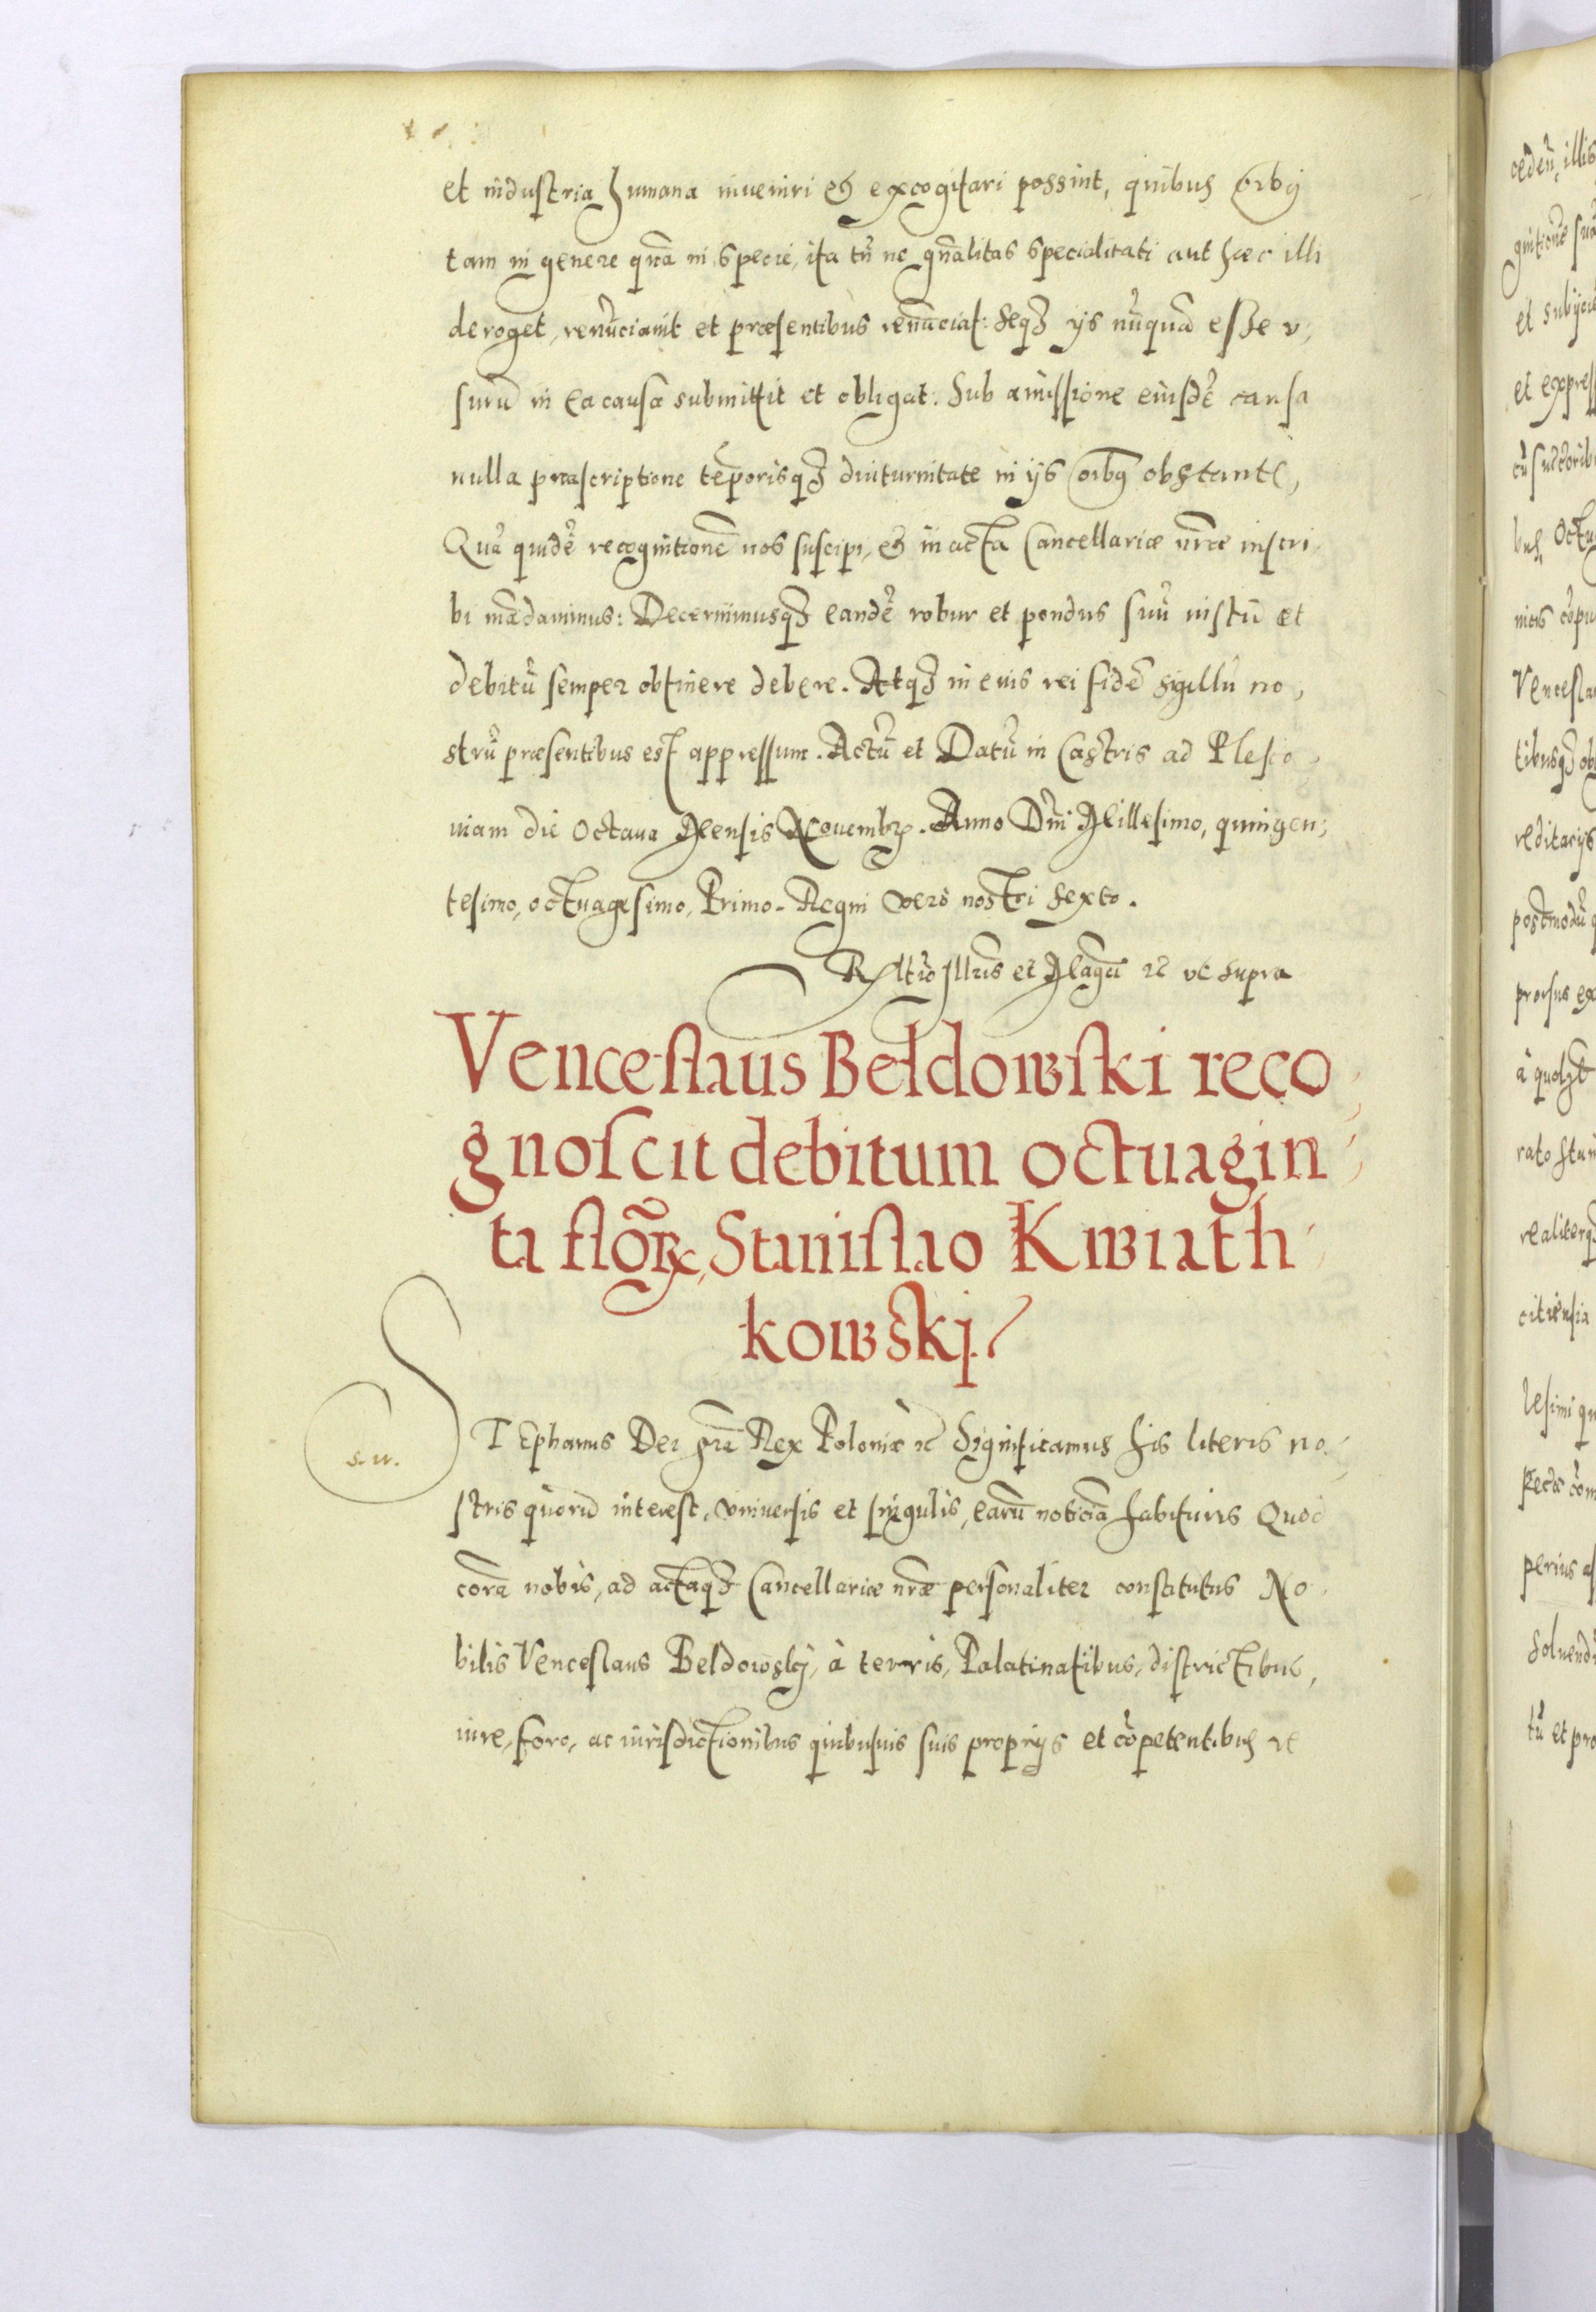 et industria humana inueniri et excogitari possint, quibus oibus
tam in genere quã in specie, ita tñ ne gñalitas specialitati aut haec illi
deroget, renũciauit et præsentibus renũciat: seqꝫ ijs nũquã esse v,
surũ in ea causa submittit et obligat. Sub amissione eiusdẽ causæ
nulla præscriptione tẽporisqꝫ diuturnitate in ijs oibus obstante,
Quã quidẽ recognitionẽ nos suscipi, et in acta Cancellariæ nræ inscri,
bi mãdauimus: Decernimusqꝫ eandẽ robur et pondus suũ iustũ et
debitũ semper obtinere debere. Atqꝫ in euis rei fidẽ sigillũ no,
strũ præsentibus est appressum. Actũ et Datũ in Castris ad Plesco,
uiam die Octaua Mensis Nouembrꝭ. Anno Dñi Millesimo, quingen,
tesimo, octuagesimo, Primo. Regni vero nostri sexto.
Rltio Illris et Magci ꝛc vt supra
Venceslaus Beldowski reco,
gnoscit debitum octuagin,
ta florꝝ, Stanislao Kwiath,
kowskj.
STEphanus Dei grã Rex Poloniæ ꝛc Significamus his literis no,
s. u.
stris quorũ interest, vniuersis et singulis, earũ noticiã habituris Quod
corã nobis, ad actaqꝫ Cancellariæ nræ personaliter constitutus No,
bilis Venceslaus Beldowskj, à terris, Palatinatibus, districtibus,
iure, foro, ac iurisdictionibus quibusuis suis proprijs et cõpetentibus re
cedeñ, illis
gnitione
et
et
bus, Octu
Venceslau
tibusqꝫ
reditarijs
postmodũ
prorsus
à
rato
realiterqꝫ
lesimi
perius
soluendi
tũ et pro